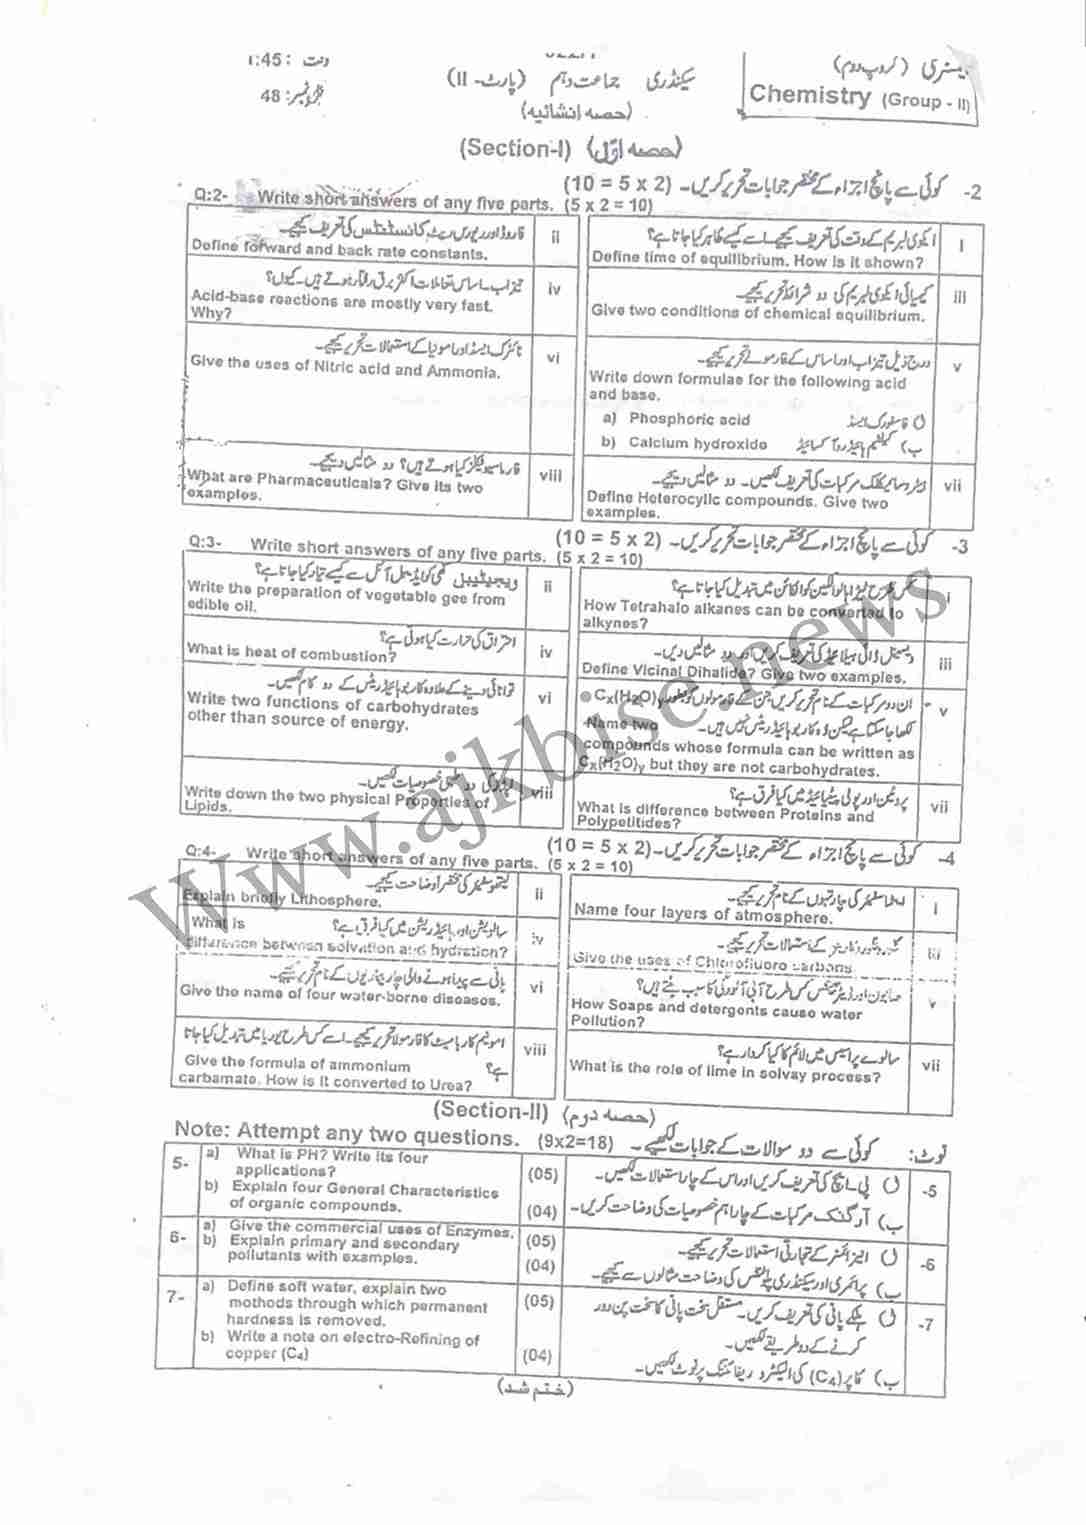 وقت : 1:45
سیکنڈری جماعت دہم (پارٹ - II)
(گروپ دوم)
نمبر: 48
(حصہ انشائیہ)
Chemistry (Group - II)
(Section-I) (حصہ اوّل)
2- کوئی سے پانچ اجزاء کے مختصر جوابات تحریر کریں۔ (10 = 5 x 2)
Q:2- Write short answers of any five parts. (5 x 2 = 10)
i
ایکوی لبریم کے وقت کی تعریف کیجیے۔ اسے کیسے ظاہر کیا جاتا ہے؟
Define time of equilibrium. How is it shown?
ii
فارورڈ اور ریورس ریٹ کانسٹنٹس کی تعریف کیجیے۔
Define forward and back rate constants.
iii
کیمیائی ایکوی لبریم کی دو شرائط تحریر کیجیے۔
Give two conditions of chemical equilibrium.
iv
تیزاب۔اساس تعاملات اکثر برق رفتار ہوتے ہیں۔ کیوں؟
Acid-base reactions are mostly very fast.
Why?
v
درج ذیل تیزاب اور اساس کے فارمولے تحریر کیجیے۔
Write down formulae for the following acid
and base.
a) Phosphoric acid ا) فاسفورک ایسڈ
b) Calcium hydroxide ب) کیلشیم ہائیڈروآکسائیڈ
vi
نائٹرک ایسڈ اور امونیا کے استعمالات تحریر کیجیے۔
Give the uses of Nitric acid and Ammonia.
vii
ہیٹروسائیکلک مرکبات کی تعریف لکھیں۔ دو مثالیں دیجیے۔
Define Heterocylic compounds. Give two
examples.
viii
فارماسیوٹیکلز کیا ہوتے ہیں؟ دو مثالیں دیجیے۔
What are Pharmaceuticals? Give its two
examples.
3- کوئی سے پانچ اجزاء کے مختصر جوابات تحریر کریں۔ (10 = 5 x 2)
Q:3- Write short answers of any five parts. (5 x 2 = 10)
i
کس طرح ٹیٹراہیلو الکین کو الکائن میں تبدیل کیا جاتا ہے؟
How Tetrahalo alkanes can be converted to
alkynes?
ii
ویجیٹیبل گھی کو ایڈیبل آئل سے کیسے تیار کیا جاتا ہے؟
Write the preparation of vegetable gee from
edible oil.
iii
ویسینل ڈائی ہیلائیڈ کی تعریف کریں اور دو مثالیں دیں۔
Define Vicinal Dihalide? Give two examples.
iv
احتراق کی حرارت کیا ہوتی ہے؟
What is heat of combustion?
v
ان دو مرکبات کے نام تحریر کریں جن کے فارمولوں کو بطور Cx(H2O)y
لکھا جا سکتا ہے لیکن وہ کاربوہائیڈریٹس نہیں ہیں۔ Name two
compounds whose formula can be written as
Cx(H2O)y but they are not carbohydrates.
vi
توانائی دینے کے علاوہ کاربوہائیڈریٹس کے دو کام لکھیں۔
Write two functions of carbohydrates
other than source of energy.
vii
پروٹین اور پولی پیپٹائیڈ میں کیا فرق ہے؟
What is difference between Proteins and
Polypetitides?
viii
لپڈز کی دو طبعی خصوصیات لکھیں۔
Write down the two physical Properties of
Lipids.
4- کوئی سے پانچ اجزاء کے مختصر جوابات تحریر کریں۔ (10 = 5 x 2)
Q:4- Write short answers of any five parts. (5 x 2 = 10)
i
اٹماسفیئر کی چار تہوں کے نام تحریر کیجیے۔
Name four layers of atmosphere.
ii
لیتھوسفیئر کی مختصراً وضاحت کیجیے۔
Explain briefly Lithosphere.
iii
کے استعمالات تحریر کیجیے۔
Give the uses of Chlorofluoro carbons
iv
سالویشن اور ہائیڈریشن میں کیا فرق ہے؟ What is
difference between solvation and hydration?
v
صابون اور ڈیٹرجنٹس کس طرح آبی آلودگی کا سبب بنتے ہیں؟
How Soaps and detergents cause water
Pollution?
vi
پانی سے پیدا ہونے والی چار بیماریوں کے نام تحریر کیجیے۔
Give the name of four water-borne diseases.
vii
سالوے پراسیس میں لائم کا کیا کردار ہے؟
What is the role of lime in solvay process?
viii
امونیم کاربامیٹ کا فارمولا تحریر کیجیے۔ اسے کس طرح یوریا میں تبدیل کیا جاتا
ہے؟ Give the formula of ammonium
carbamate. How is it converted to Urea?
(Section-II) (حصہ دوم)
Note: Attempt any two questions. (9x2=18) نوٹ: کوئی سے دو سوالات کے جوابات لکھیے۔
5- a) What is PH? Write its four
applications? (05)
b) Explain four General Characteristics
of organic compounds. (04)
5- ا) پی۔ایچ کی تعریف کریں اور اس کے چار استعمالات لکھیں۔
ب) آرگنک مرکبات کے چار اہم خصوصیات کی وضاحت کریں۔
6- a) Give the commercial uses of Enzymes. (05)
b) Explain primary and secondary
pollutants with examples. (04)
6- ا) انیزائمز کے تجارتی استعمالات تحریر کیجیے۔
ب) پرائمری اور سیکنڈری پلوٹنٹس کی وضاحت مثالوں سے کیجیے۔
7- a) Define soft water, explain two
mothods through which permanent
hardness is removed. (05)
b) Write a note on electro-Refining of
copper (C4) (04)
7- ا) ہلکے پانی کی تعریف کریں۔ مستقل سخت پانی کا سخت پن دور
کرنے کے دو طریقے لکھیں۔
ب) کاپر (C4) کی الیکٹرو ریفائننگ پر نوٹ لکھیں۔
(ختم شد)
www.ajkbise.news